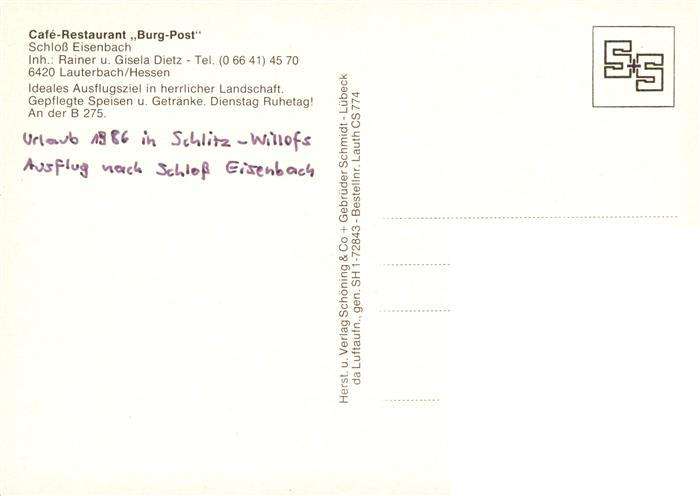 Café-Restaurant „Burg-Post"
Schloß Eisenbach
Inh.: Rainer u. Gisela Dietz - Tel. (0 66 41) 45 70
6420 Lauterbach/Hessen
Ideales Ausflugsziel in herrlicher Landschaft.
Gepflegte Speisen u. Getränke. Dienstag Ruhetag!
An der B 275.
Urlaub 1986 in Schlitz-Willofs
Ausflug nach Schloß Eisenbach
Herst. u. Verlag Schöning & Co + Gebrüder Schmidt - Lübeck
da Luftaufn., gen. SH 1-72843 - Bestellnr. Lauth CS 774
S+S